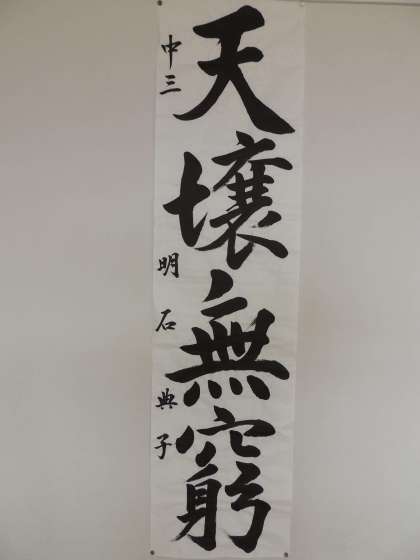 天壌無窮
中三 明石典子